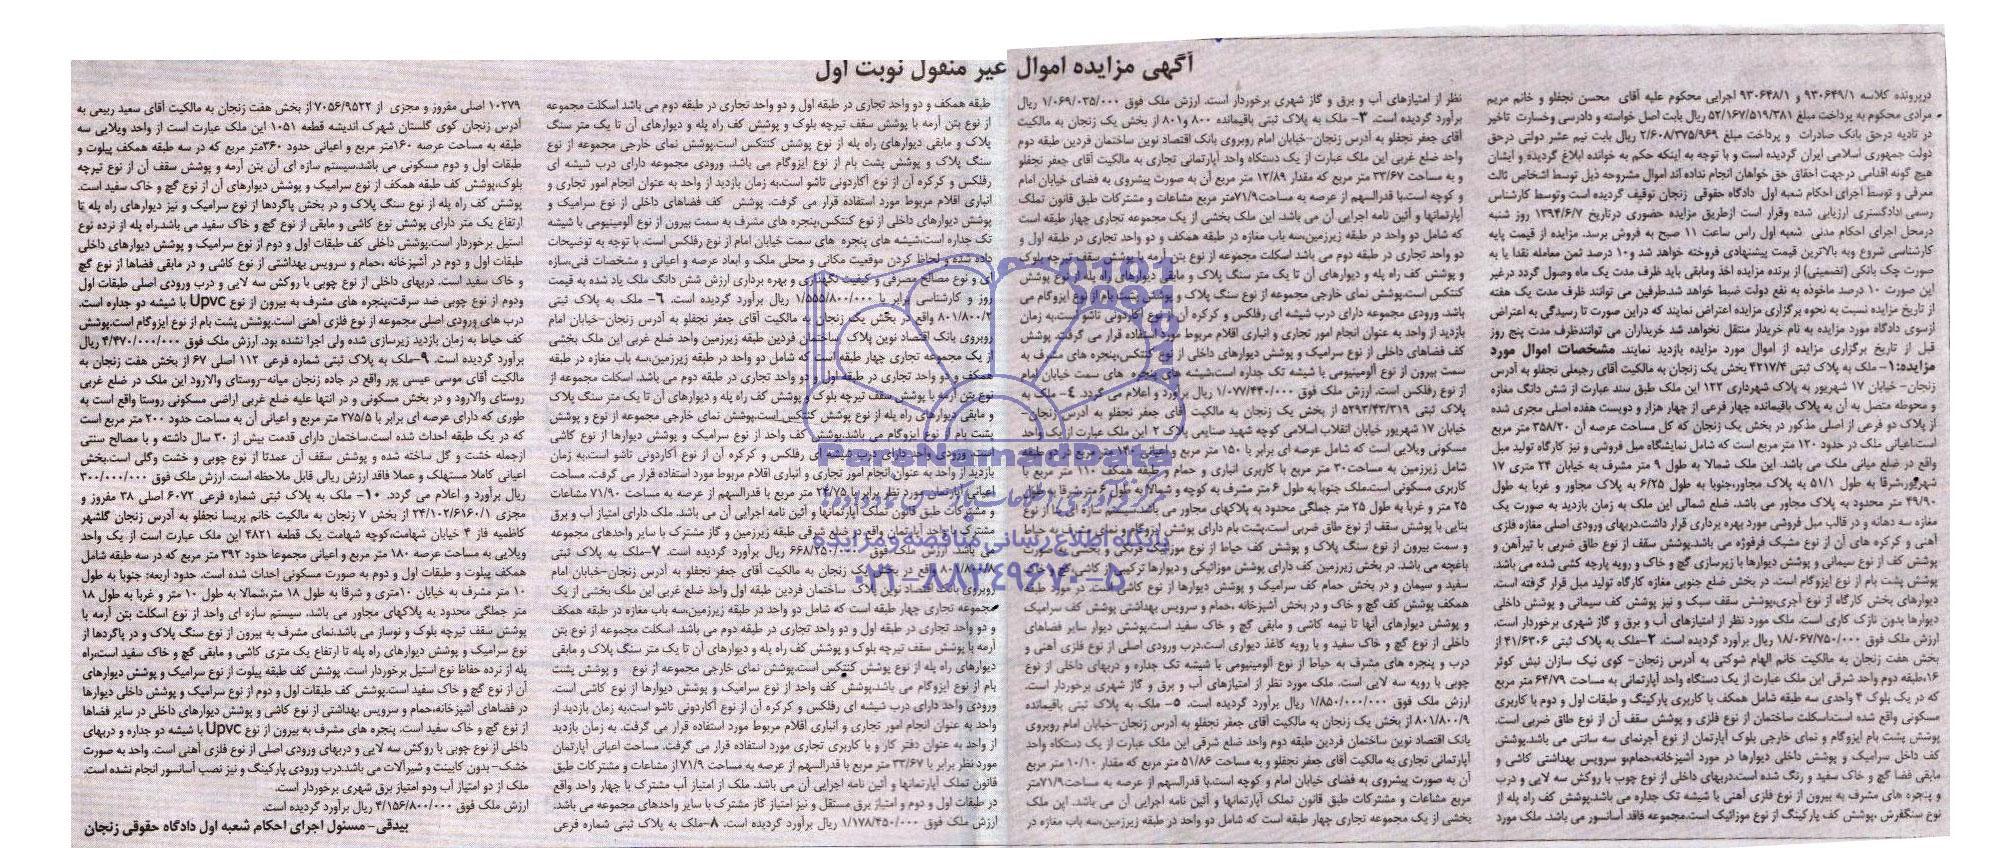 آگهی مزایده اموال غیر منقول نوبت اول
درپرونده کلاسه ۹۳۰۶۴۹/۱ و ۹۳۰۶۴۸/۱ اجرایی محکوم علیه آقای محسن نجفلو و خانم مریم
مرادی محکوم به پرداخت مبلغ ۵۲/۱۶۷/۵۱۹/۳۸۱ ریال بابت اصل خواسته و دادرسی وخسارت تاخیر
در تادیه درحق بانک صادرات و پرداخت مبلغ ۲/۶۰۸/۳۷۵/۹۶۹ ریال بابت نیم عشر دولتی درحق
دولت جمهوری اسلامی ایران گردیده است و با توجه به اینکه حکم به خوانده ابلاغ گردیده و ایشان
هیچ گونه اقدامی درجهت احقاق حق خواهان انجام نداده اند اموال مشروحه ذیل توسط اشخاص ثالث
معرفی و توسط اجرای احکام شعبه اول دادگاه حقوقی زنجان توقیف گردیده است وتوسط کارشناس
رسمی دادگستری ارزیابی شده وقرار است ازطریق مزایده حضوری درتاریخ ۱۳۹۴/۶/۷ روز شنبه
درمحل اجرای احکام مدنی شعبه اول راس ساعت ۱۱ صبح به فروش برسد. مزایده از قیمت پایه
کارشناسی شروع وبه بالاترین قیمت پیشنهادی فروخته خواهد شد و۱۰ درصد ثمن معامله نقدا یا به
صورت چک بانکی (تضمینی) از برنده مزایده اخذ ومابقی باید ظرف مدت یک ماه وصول گردد درغیر
این صورت ۱۰ درصد ماخوذه به نفع دولت ضبط خواهد شد.طرفین می توانند ظرف مدت یک هفته
از تاریخ مزایده نسبت به نحوه برگزاری مزایده اعتراض نمایند که دراین صورت تا رسیدگی به اعتراض
ازسوی دادگاه مورد مزایده به نام خریدار منتقل نخواهد شد خریداران می توانندظرف مدت پنج روز
قبل از تاریخ برگزاری مزایده از اموال مورد مزایده بازدید نمایند. مشخصات اموال مورد
مزایده: ۱- ملک به پلاک ثبتی ۴۲۱۷/۴ بخش یک زنجان به مالکیت آقای رجبعلی نجفلو به آدرس
زنجان- خیابان ۱۷ شهریور به پلاک شهرداری ۱۲۲ این ملک طبق سند عبارت از شش دانگ مغازه
و محوطه متصل به آن به پلاک باقیمانده چهار فرعی از چهار هزار و دویست هفده اصلی مجری شده
از پلاک دو فرعی از اصلی مذکور در بخش یک زنجان که کل مساحت عرصه آن ۳۵۸/۲۰ متر مربع
است.اعیانی ملک در حدود ۱۲۰ متر مربع است که شامل نمایشگاه مبل فروشی و نیز کارگاه تولید مبل
واقع در ضلع میانی ملک می باشد. این ملک شمالا به طول ۹ متر مشرف به خیابان ۲۴ متری ۱۷
شهریور،شرقا به طول ۵۱/۱ به پلاک مجاور،جنوبا به طول ۶/۲۵ به پلاک مجاور و غربا به طول
۴۹/۹۰ متر محدود به پلاک مجاور می باشد. ضلع شمالی این ملک به زمان بازدید به صورت یک
مغازه سه دهانه و در قالب مبل فروشی مورد بهره برداری قرار داشت.دربهای ورودی اصلی مغازه فلزی
آهنی و کرکره های آن از نوع مشبک فرفوژه می باشد.پوشش سقف از نوع طاق ضربی با تیرآهن و
پوشش کف از نوع سیمانی و پوشش دیوارها با زیرسازی گچ و خاک و رویه پارچه کشی شده می باشد.
پوشش پشت بام از نوع ایزوگام است. در بخش ضلع جنوبی مغازه کارگاه تولید مبل قرار گرفته است.
دیوارهای بخش کارگاه از نوع آجری،پوشش سقف سبک و نیز پوشش کف سیمانی و پوشش داخلی
دیوارها بدون نازک کاری است. ملک مورد نظر از امتیازهای آب و برق و گاز شهری برخوردار است.
ارزش ملک فوق ۱۸/۰۶۷/۷۵۰/۰۰۰ ریال برآورد گردیده است. ۲-ملک به پلاک ثبتی ۴۱/۶۳۰۶ از
بخش هفت زنجان به مالکیت خانم الهام شوکتی به آدرس زنجان- کوی نیک سازان نبش کوثر
۱۶،طبقه دوم واحد شرقی این ملک عبارت از یک دستگاه واحد آپارتمانی به مساحت ۶۴/۷۹ متر مربع
که در یک بلوک ۴ واحدی سه طبقه شامل همکف با کاربری پارکینگ و طبقات اول و دوم با کاربری
مسکونی واقع شده است.اسکلت ساختمان از نوع فلزی و پوشش سقف آن از نوع طاق ضربی است.
پوشش پشت بام ایزوگام و نمای خارجی بلوک آپارتمان از نوع آجرنمای سه سانتی می باشد.پوشش
کف داخل سرامیک و پوشش داخلی دیوارها در مورد آشپزخانه،حمام،و سرویس بهداشتی کاشی و
مابقی فضا گچ و خاک سفید و رنگ شده است.دربهای داخلی از نوع چوب با روکش سه لایی و درب
و پنجره های مشرف به بیرون از نوع فلزی آهنی با شیشه تک جداره می باشد.پوشش کف راه پله از
نوع سنگفرش ،پوشش کف پارکینگ از نوع موزائیک است.مجموعه فاقد آسانسور می باشد. ملک مورد
نظر از امتیازهای آب و برق و گاز شهری برخوردار است. ارزش ملک فوق ۱/۰۶۹/۰۳۵/۰۰۰ ریال
برآورد گردیده است. ۳- ملک به پلاک ثبتی باقیمانده ۸۰۰ و۸۰۱ از بخش یک زنجان به مالکیت
آقای جعفر نجفلو به آدرس زنجان-خیابان امام روبروی بانک اقتصاد نوین ساختمان فردین طبقه دوم
واحد ضلع غربی این ملک عبارت از یک دستگاه واحد آپارتمانی تجاری به مالکیت آقای جعفر نجفلو
و به مساحت ۳۳/۶۷ متر مربع که مقدار ۱۲/۸۹ متر مربع آن به صورت پیشروی به فضای خیابان امام
و کوچه است.با قدرالسهم از عرصه به مساحت۷۱/۹متر مربع مشاعات و مشترکات طبق قانون تملک
آپارتمانها و آئین نامه اجرایی آن می باشد. این ملک بخشی از یک مجموعه تجاری چهار طبقه است
که شامل دو واحد در طبقه زیرزمین،سه باب مغازه در طبقه همکف و دو واحد تجاری در طبقه اول و
دو واحد تجاری در طبقه دوم می باشد اسکلت مجموعه از نوع بتن آرمه با پوشش سقف تیرچه بلوک
و پوشش کف راه پله و دیوارهای آن تا یک متر سنگ پلاک و مابقی دیوارهای راه پله از نوع پوشش
کنتکس است.پوشش نمای خارجی مجموعه از نوع سنگ پلاک و پوشش پشت بام از نوع ایزوگام می
باشد. ورودی مجموعه دارای درب شیشه ای رفلکس و کرکره آن از نوع آکاردونی تاشو است.به زمان
بازدید از واحد به عنوان انجام امور تجاری و انباری اقلام مربوط مورد استفاده قرار می گرفت. پوشش
کف فضاهای داخلی از نوع سرامیک و پوشش دیوارهای داخلی از نوع کنتکس،پنجره های مشرف به
سمت بیرون از نوع آلومینیومی با شیشه تک جداره است،شیشه های پنجره های سمت خیابان امام
از نوع رفلکس است. ارزش ملک فوق ۱/۰۷۷/۴۴۰/۰۰۰ ریال برآورد و اعلام می گردد. ۴- ملک به
پلاک ثبتی ۵۲۹۳/۴۳/۳۱۹ از بخش یک زنجان به مالکیت آقای جعفر نجفلو به آدرس زنجان-
خیابان ۱۷ شهریور خیابان انقلاب اسلامی کوچه شهید صنایعی پلاک ۲ این ملک عبارت از یک واحد
مسکونی ویلایی است که شامل عرصه ای برابر با ۱۵۰ متر مربع و اعیانی ۱۴۰ متر مربع در دو طبقه
شامل زیرزمین به مساحت۳۰ متر مربع با کاربری انباری و حمام و طبقه همکف ۱۱۰ متر مربع با
کاربری مسکونی است.ملک جنوبا به طول ۶ متر مشرف به کوچه و شمالا به طول ۶ متر شرقا به طول
۲۵ متر و غربا به طول ۲۵ متر جملگی محدود به پلاکهای مجاور می باشد.سیستم سازه ای آن از نوع
بنایی با پوشش سقف از نوع طاق ضربی است.پشت بام دارای پوشش ایزوگام و نمای مشرف به حیاط
و سمت بیرون از نوع سنگ پلاک و پوشش کف حیاط از نوع موزائیک فرنگی و بخشی به صورت
باغچه می باشد. در بخش زیرزمین کف دارای پوشش موزائیکی و دیوارها ترکیبی از کاشی گچ و خاک
سفید و سیمان و در بخش حمام کف سرامیک و پوشش دیوارها از نوع کاشی است. در مورد طبقه
همکف پوشش کف گچ و خاک و در بخش آشپزخانه ،حمام و سرویس بهداشتی پوشش کف سرامیک
و پوشش دیوارهای آنها تا نیمه کاشی و مابقی گچ و خاک سفید است.پوشش دیوار سایر فضاهای
داخلی از نوع گچ و خاک سفید و با رویه کاغذ دیواری است.درب ورودی اصلی از نوع فلزی آهنی و
درب و پنجره های مشرف به حیاط از نوع آلومینیومی با شیشه تک جداره و دربهای داخلی از نوع
چوبی با رویه سه لایی است. ملک مورد نظر از امتیازهای آب و برق و گاز شهری برخوردار است.
ارزش ملک فوق ۱/۸۵۰/۰۰۰/۰۰۰ ریال برآورد گردیده است. ۵- ملک به پلاک ثبتی باقیمانده
۸۰۱/۸۰۰/۹ از بخش یک زنجان به مالکیت آقای جعفر نجفلو به آدرس زنجان-خیابان امام روبروی
بانک اقتصاد نوین ساختمان فردین طبقه دوم واحد ضلع شرقی این ملک عبارت از یک دستگاه واحد
آپارتمانی تجاری به مالکیت آقای جعفر نجفلو و به مساحت ۵۱/۸۶ متر مربع که مقدار ۱۰/۱۰ متر
آن به صورت پیشروی به فضای خیابان امام و کوچه است.با قدرالسهم از عرصه به مساحت۷۱/۹متر
مربع مشاعات و مشترکات طبق قانون تملک آپارتمانها و آئین نامه اجرایی آن می باشد. این ملک
بخشی از یک مجموعه تجاری چهار طبقه است که شامل دو واحد در طبقه زیرزمین،سه باب مغازه در
طبقه همکف و دو واحد تجاری در طبقه اول و دو واحد تجاری در طبقه دوم می باشد اسکلت مجموعه
از نوع بتن آرمه با پوشش سقف تیرچه بلوک و پوشش کف راه پله و دیوارهای آن تا یک متر سنگ
پلاک و مابقی دیوارهای راه پله از نوع پوشش کنتکس است.پوشش نمای خارجی مجموعه از نوع
سنگ پلاک و پوشش پشت بام از نوع ایزوگام می باشد. ورودی مجموعه دارای درب شیشه ای
رفلکس و کرکره آن از نوع آکاردونی تاشو است.به زمان بازدید از واحد به عنوان انجام امور تجاری و
انباری اقلام مربوط مورد استفاده قرار می گرفت. پوشش کف فضاهای داخلی از نوع سرامیک و
پوشش دیوارهای داخلی از نوع کنتکس،پنجره های مشرف به سمت بیرون از نوع آلومینیومی با شیشه
تک جداره است،شیشه های پنجره های سمت خیابان امام از نوع رفلکس است. با توجه به توضیحات
داده شده و لحاظ کردن موقعیت مکانی و محلی ملک و ابعاد عرصه و اعیانی و مشخصات فنی،سازه
ای و نوع مصالح مصرفی و کیفیت نگهداری و بهره برداری ارزش شش دانگ ملک یاد شده به قیمت
روز و کارشناسی برابر با ۱/۵۵۵/۸۰۰/۰۰۰ ریال برآورد گردیده است. ۶- ملک به پلاک ثبتی
۸۰۱/۸۰۰/۲ واقع در بخش یک زنجان به مالکیت آقای جعفر نجفلو به آدرس زنجان-خیابان امام
روبروی بانک اقتصاد نوین پلاک ساختمان فردین طبقه زیرزمین واحد ضلع غربی این ملک بخشی
از یک مجموعه تجاری چهار طبقه است که شامل دو واحد در طبقه زیرزمین،سه باب مغازه در طبقه
همکف و دو واحد تجاری در طبقه اول و دو واحد تجاری در طبقه دوم می باشد. اسکلت مجموعه از
نوع بتن آرمه با پوشش سقف تیرچه بلوک و پوشش کف راه پله و دیوارهای آن تا یک متر سنگ پلاک
و مابقی دیوارهای راه پله از نوع پوشش کنتکس است.پوشش نمای خارجی مجموعه از نوع و پوشش
پشت بام از نوع ایزوگام می باشد.پوشش کف واحد از نوع سرامیک و پوشش دیوارها از نوع کاشی
است. ورودی واحد دارای درب شیشه ای رفلکس و کرکره آن از نوع آکاردونی تاشو است.به زمان
بازدید از واحد به عنوان انجام امور تجاری و انباری اقلام مربوط مورد استفاده قرار می گرفت. مساحت
اعیانی آپارتمان مورد نظر برابر با ۲۴/۷۵ متر مربع با قدرالسهم از عرصه به مساحت ۷۱/۹۰ مشاعات
و مشترکات طبق قانون تملک آپارتمانها و آئین نامه اجرایی آن می باشد. ملک دارای امتیاز آب و برق
مشترک با واحد آپارتمانی واقع در ضلع شرقی طبقه زیرزمین و گاز مشترک با سایر واحدهای مجموعه
می باشد. ارزش ملک فوق ۶۶۸/۲۵۰/۰۰۰ ریال برآورد گردیده است. ۷-ملک به پلاک ثبتی
واقع در بخش یک زنجان به مالکیت آقای جعفر نجفلو به آدرس زنجان-خیابان امام
روبروی بانک اقتصاد نوین پلاک ساختمان فردین طبقه اول واحد ضلع غربی این ملک بخشی از یک
مجموعه تجاری چهار طبقه است که شامل دو واحد در طبقه زیرزمین،سه باب مغازه در طبقه همکف
و دو واحد تجاری در طبقه اول و دو واحد تجاری در طبقه دوم می باشد. اسکلت مجموعه از نوع بتن
آرمه با پوشش سقف تیرچه بلوک و پوشش کف راه پله و دیوارهای آن تا یک متر سنگ پلاک و مابقی
دیوارهای راه پله از نوع پوشش کنتکس است.پوشش نمای خارجی مجموعه از نوع و پوشش پشت
بام از نوع ایزوگام می باشد.پوشش کف واحد از نوع سرامیک و پوشش دیوارها از نوع کاشی است.
ورودی واحد دارای درب شیشه ای رفلکس و کرکره آن از نوع آکاردونی تاشو است.به زمان بازدید از
واحد به عنوان انجام امور تجاری و انباری اقلام مربوط مورد استفاده قرار می گرفت. به زمان بازدید
از واحد به عنوان دفتر کار و با کاربری تجاری مورد استفاده قرار می گرفت. مساحت اعیانی آپارتمان
مورد نظر برابر با ۳۳/۶۷ متر مربع با قدرالسهم از عرصه به مساحت ۷۱/۹ از مشاعات و مشترکات طبق
قانون تملک آپارتمانها و آئین نامه اجرایی آن می باشد. ملک از امتیاز آب مشترک با چهار واحد واقع
در طبقات اول و دوم و امتیاز برق مستقل و نیز امتیاز گاز مشترک با سایر واحدهای مجموعه می باشد.
ارزش ملک فوق ۱/۱۷۸/۴۵۰/۰۰۰ ریال برآورد گردیده است. ۸-ملک به پلاک ثبتی شماره فرعی
۱۰۲۷۹ اصلی مفروز و مجزی از ۷۰۵۶/۹۵۲۲ از بخش هفت زنجان به مالکیت آقای سعید ربیعی به
آدرس زنجان کوی گلستان شهرک اندیشه قطعه ۱۰۵۱ این ملک عبارت است از واحد ویلایی سه
طبقه به مساحت عرصه ۱۶۰متر مربع و اعیانی حدود ۳۶۰متر مربع که در سه طبقه همکف پیلوت و
طبقات اول و دوم مسکونی می باشد.سیستم سازه ای آن بتن آرمه و پوشش سقف آن از نوع تیرچه
بلوک،پوشش کف طبقه همکف از نوع سرامیک و پوشش دیوارهای آن از نوع گچ و خاک سفید است.
پوشش کف راه پله از نوع سنگ پلاک و در بخش پاگردها از نوع سرامیک و نیز دیوارهای راه پله تا
ارتفاع یک متر دارای پوشش نوع کاشی و مابقی از نوع گچ و خاک سفید می باشد.راه پله از نرده نوع
استیل برخوردار است.پوشش داخلی کف طبقات اول و دوم از نوع سرامیک و پوشش دیوارهای داخلی
طبقات اول و دوم در آشپزخانه ،حمام و سرویس بهداشتی از نوع کاشی و در مابقی فضاها از نوع گچ
و خاک سفید است. دربهای داخلی از نوع چوبی با روکش سه لایی و درب ورودی اصلی طبقات اول
ودوم از نوع چوبی ضد سرقت.پنجره های مشرف به بیرون از نوع Upvc با شیشه دو جداره است.
درب های ورودی اصلی مجموعه از نوع فلزی آهنی است.پوشش پشت بام از نوع ایزوگام است.پوشش
کف حیاط به زمان بازدید زیرسازی شده ولی اجرا نشده بود. ارزش ملک فوق ۴/۴۷۰/۰۰۰/۰۰۰ ریال
برآورد گردیده است. ۹-ملک به پلاک ثبتی شماره فرعی ۱۱۲ اصلی ۶۷ از بخش هفت زنجان به
مالکیت آقای موسی عیسی پور واقع در جاده زنجان میانه-روستای والارود این ملک در ضلع غربی
روستای والارود و در بخش مسکونی و در انتها علیه ضلع غربی اراضی مسکونی روستا واقع است به
طوری که دارای عرصه ای برابر با ۲۷۵/۵ متر مربع است و اعیانی آن به مساحت حدود ۲۰۰ متر مربع
که در یک طبقه احداث شده است.ساختمان دارای قدمت بیش از ۳۰ سال داشته و با مصالح سنتی
ازجمله خشت و گل ساخته شده و پوشش سقف آن عمدتا از نوع چوبی و خشت وگلی است.بخش
اعیانی کاملا مستهلک و عملا فاقد ارزش ریالی قابل ملاحظه است. ارزش ملک فوق ۳۰۰/۰۰۰/۰۰۰
ریال برآورد و اعلام می گردد. ۱۰- ملک به پلاک ثبتی شماره فرعی ۶۰۷۲ اصلی ۳۸ مفروز و
مجزی ۲۴/۱۰۲/۶۱۶۰/۱ از بخش ۷ زنجان به مالکیت خانم پریسا نجفلو به آدرس زنجان گلشهر
کاظمیه فاز ۴ خیابان شهامت،کوچه شهامت یک قطعه ۴۸۲۱ این ملک عبارت است از یک واحد
ویلایی به مساحت عرصه ۱۸۰ متر مربع و اعیانی مجموعا حدود ۳۹۲ متر مربع که در سه طبقه شامل
همکف پیلوت و طبقات اول و دوم به صورت مسکونی احداث شده است. حدود اربعه: جنوبا به طول
۱۰ متر مشرف به خیابان ۱۰متری و شرقا به طول ۱۸ متر،شمالا به طول ۱۰ متر و غربا به طول ۱۸
متر جملگی محدود به پلاکهای مجاور می باشد. سیستم سازه ای واحد از نوع اسکلت بتن آرمه با
پوشش سقف تیرچه بلوک و نوساز می باشد.نمای مشرف به بیرون از نوع سنگ پلاک و در پاگردها از
نوع سرامیک و پوشش دیوارهای راه پله تا ارتفاع یک متری کاشی و مابقی گچ و خاک سفید است،راه
پله از نرده حفاظ نوع استیل برخوردار است. پوشش کف طبقه پیلوت از نوع سرامیک و پوشش دیوارهای
آن از نوع گچ و خاک سفید است.پوشش کف طبقات اول و دوم از نوع سرامیک و پوشش داخلی دیوارها
در فضاهای آشپزخانه،حمام و سرویس بهداشتی از نوع کاشی و پوشش دیوارهای داخلی در سایر فضاها
از نوع گچ و خاک سفید است. پنجره های مشرف به بیرون از نوع Upvc با شیشه دو جداره و دربهای
داخلی از نوع چوبی با روکش سه لایی و دربهای ورودی اصلی از نوع فلزی آهنی است. واحد به صورت
خشک- بدون کابینت و شیرآلات می باشد.درب ورودی پارکینگ و نیز نصب آسانسور انجام نشده است.
ملک از دو امتیاز آب ودو امتیاز برق شهری برخوردار است.
ارزش ملک فوق ۴/۱۵۶/۸۰۰/۰۰۰ ریال برآورد گردیده است.
بیدقی- مسئول اجرای احکام شعبه اول دادگاه حقوقی زنجان
ParsNamadData
پایگاه اطلاع رسانی مناقصه و مزایده
۰۲۱-۸۸۳۴۹۶۷۰-۵